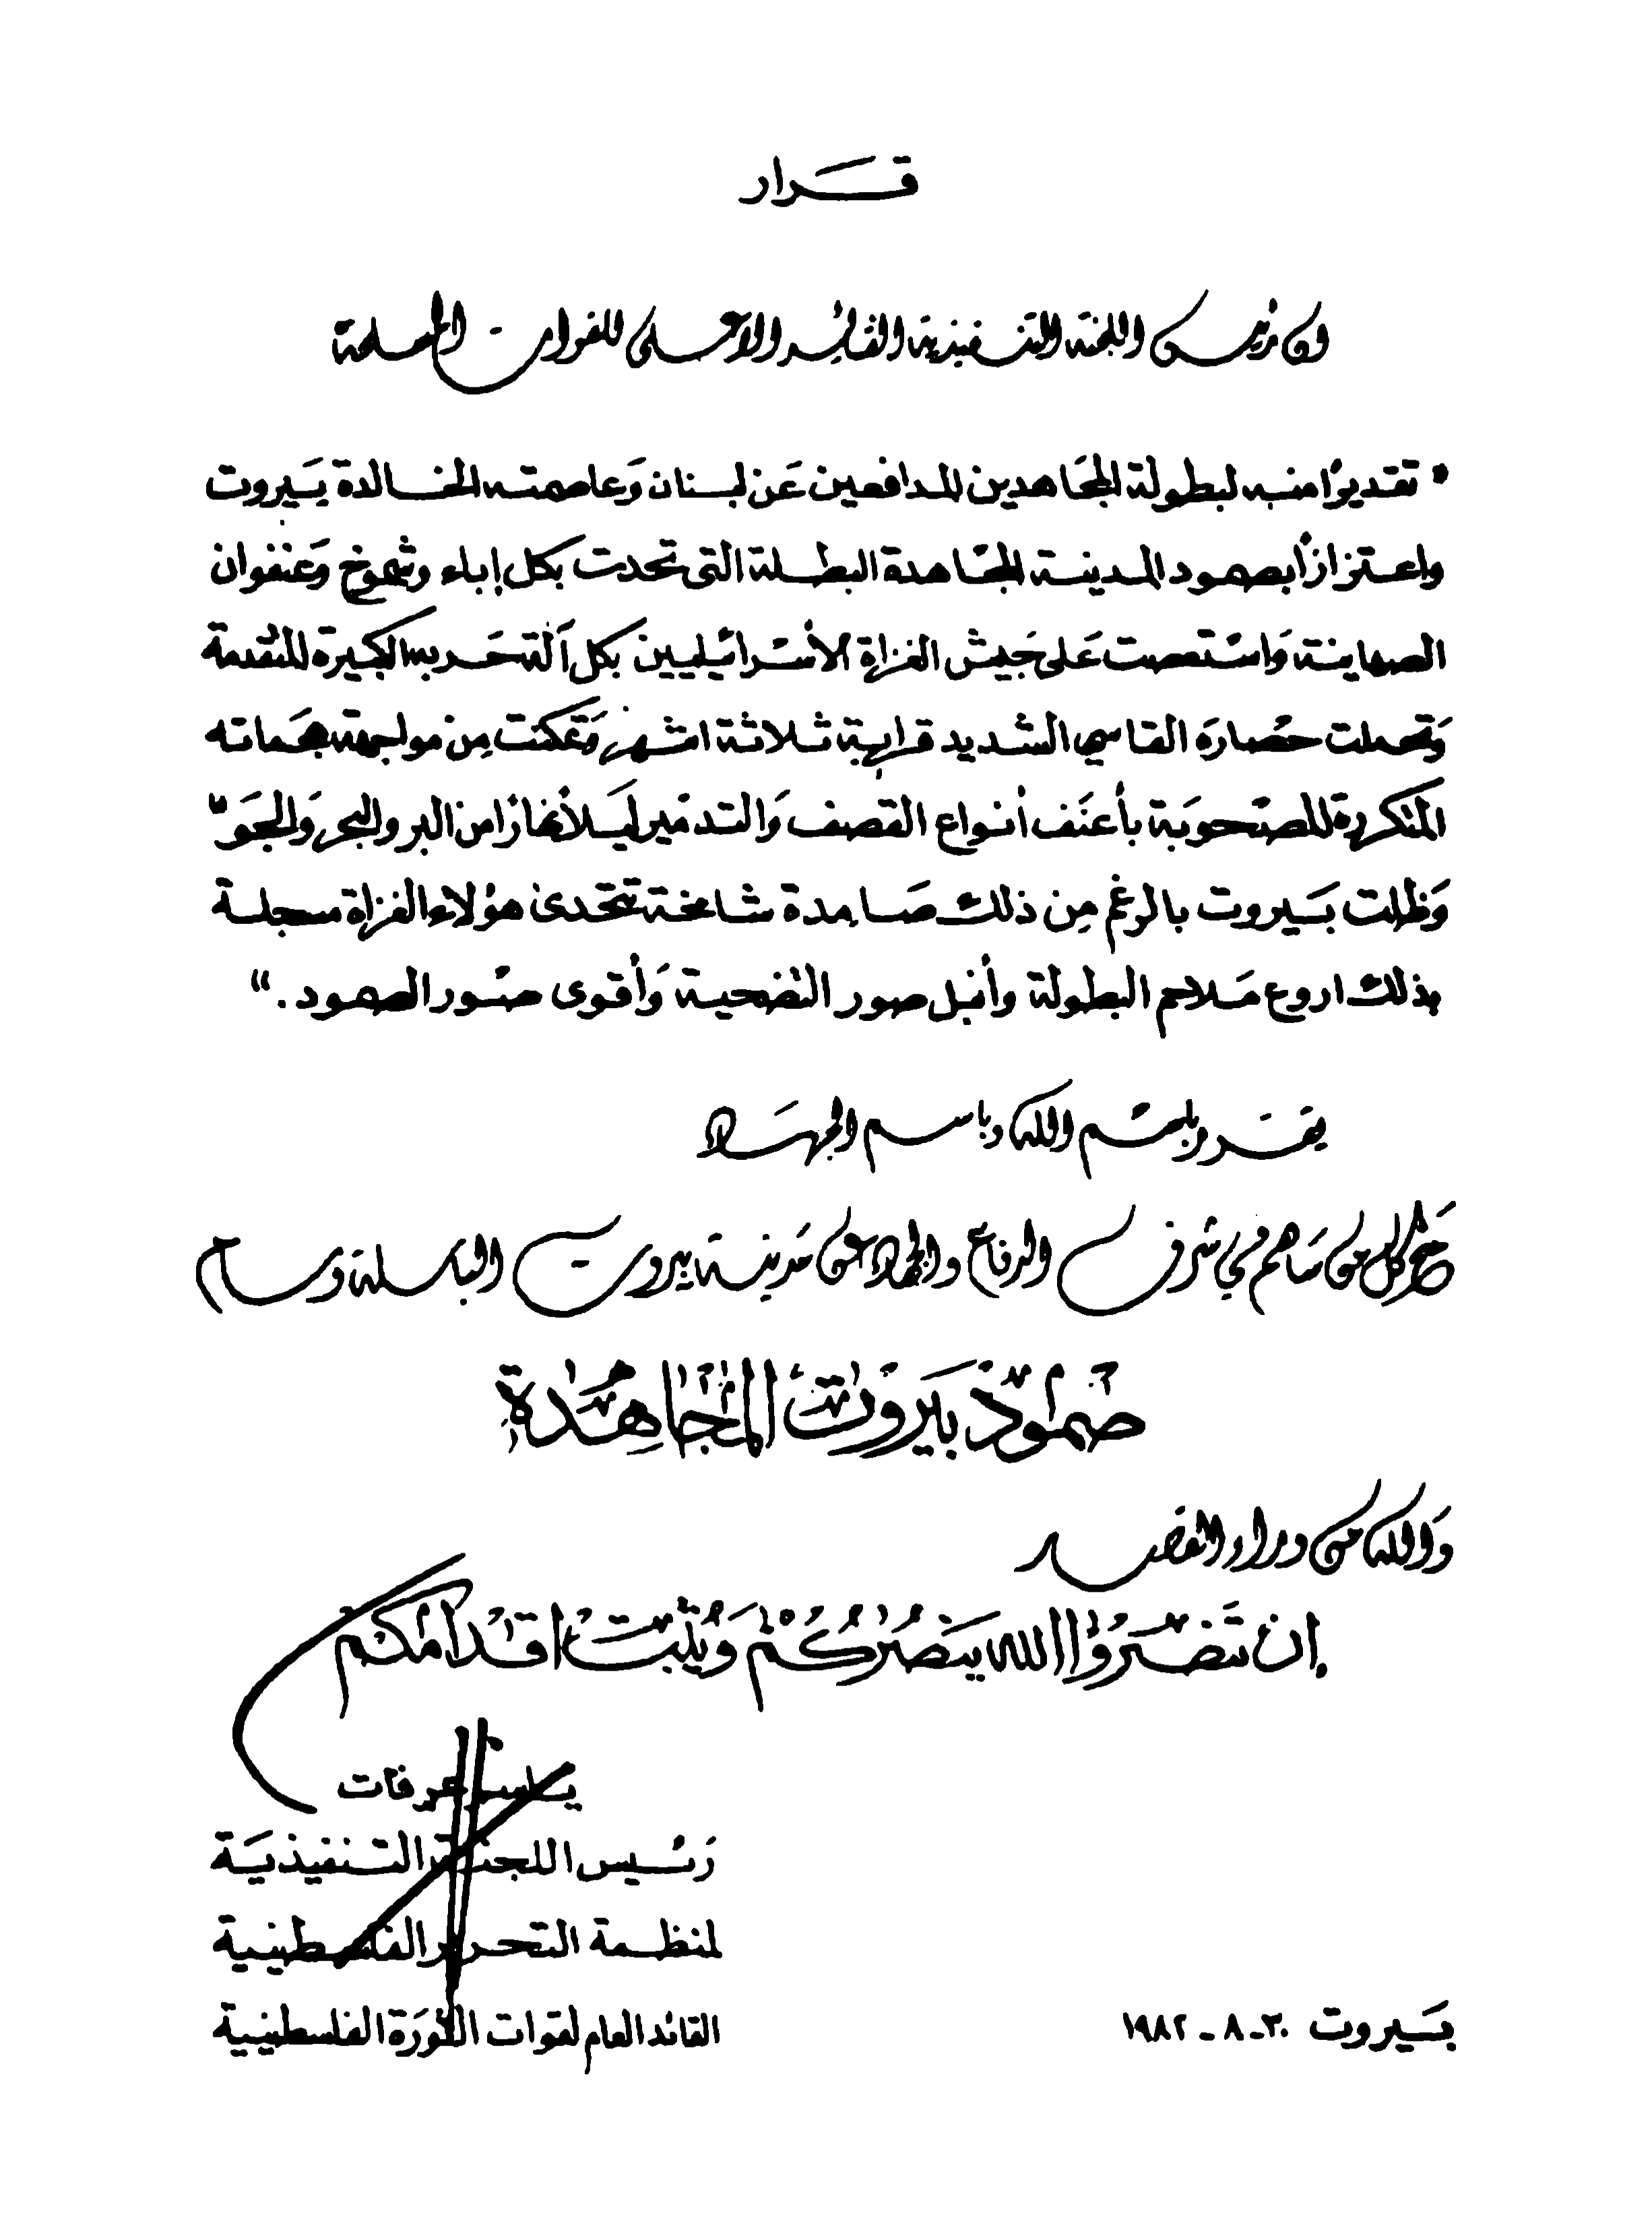 قرار
إن رئيس اللجنة التنفيذية القائد الأعلى للقوات المسلحة
" تقديرًا منه لبطولة المجاهدين المدافعين عَن لبنان وَعاصمته الخالدة بَيروت
واعتزازًا بصمود المدينة المجاهدة البطلة التي تحدت بكل إباء وشموخ وَعنفوان
الصهاينة وَاستعصت عَلى جَيش الغزاة الأسرائيليين بكل آلته حَربه الكبيرة المتقدمة
وَتحملت حصاره القاسي الشديد قرابة ثلاثة اشهر وَتمكنت مِن مواجهة هجَماته
المتكررة المصحوبَة بأعنَف أنواع القصف وَالتدمير ليَلاً نهارًا من البر والبحر وَالجَو"
وَظلت بَيروت بالرغم مِن ذلك صَامدة شامخة تتحَدى هؤلاء الغزاة مسجلة
بذلك اروع مَلاحم البطولة وأنبل صور التضحية وَأقوى صور الصمود . "
يقرر باسم الله وباسم الجهاد
مَنح كل من سَاهم في شرف الدفاع والجهاد عن مَدينة بيروت الباسلة وسام
صُمودْ بَيروت المُجَاهِدَة
وَالله من وراء القصد
إن تَنصُرُوا الله يَنصُرْكُمْ وَيُثبّتْ اقدَامَكم
ياسر عرفات
رَئيس اللجنة التنفيذيَة
لمنظمة التحرير الفلسطينية
القائد العام لقوات الثورَة الفلسطينية
بَيروت ٣٠ - ٨ - ١٩٨٢